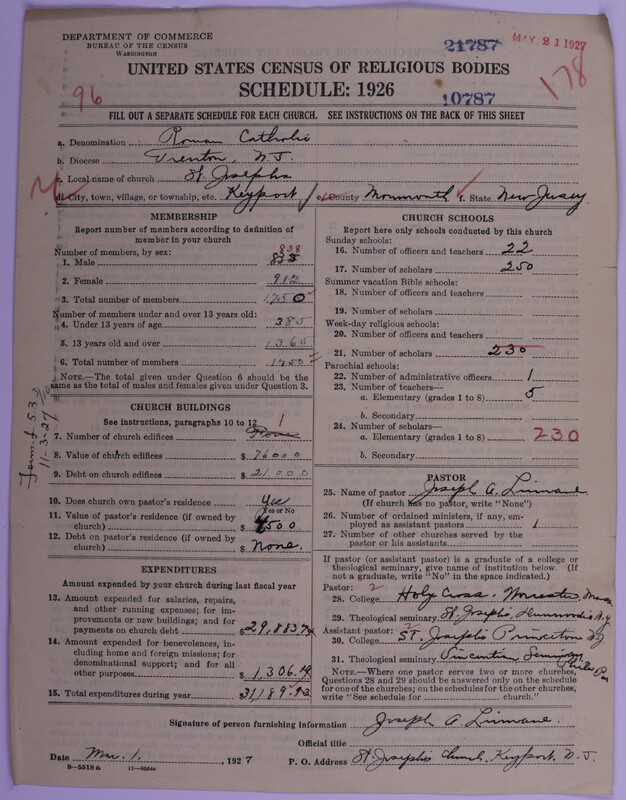 DEPARTMENT OF COMMERCE
BUREAU OF THE CENSUS
WASHINGTON
21787
MAY 21 1927
UNITED STATES CENSUS OF RELIGIOUS BODIES
SCHEDULE: 1926
96
10787
178
FILL OUT A SEPARATE SCHEDULE FOR EACH CHURCH. SEE INSTRUCTIONS ON THE BACK OF THIS SHEET
a. Denomination Roman Catholic
b. Diocese Trenton, N.J.
c. Local name of church St. Josephs
d. City, town, village, or township, etc. Keyport e. County Monmouth f. State New Jersey
MEMBERSHIP
Report number of members according to definition of
member in your church
Number of members, by sex:
838
1. Male
2. Female 912
3. Total number of members 1750
Number of members under and over 13 years old:
4. Under 13 years of age 385
5. 13 years old and over 1365
6. Total number of members 1750
NOTE.—The total given under Question 6 should be the
same as the total of males and females given under Question 3.
Form 53
11-3-27
CHURCH BUILDINGS
See instructions, paragraphs 10 to 12
1
7. Number of church edifices None
8. Value of church edifices $ 76000
9. Debt on church edifices $ 21.000
10. Does church own pastor's residence Yes
Yes or No
11. Value of pastor's residence (if owned by
church) $ 4500
12. Debt on pastor's residence (if owned by
church) $ None.
EXPENDITURES
Amount expended by your church during last fiscal year
13. Amount expended for salaries, repairs,
and other running expenses; for im-
provements or new buildings; and for
payments on church debt $ 29,883.74
14. Amount expended for benevolences, in-
cluding home and foreign missions; for
denominational support; and for all
other purposes $ 1,306.19
15. Total expenditures during year $ 31,189.93
CHURCH SCHOOLS
Report here only schools conducted by this church
Sunday schools:
16. Number of officers and teachers 22
17. Number of scholars 250
Summer vacation Bible schools:
18. Number of officers and teachers
19. Number of scholars
Week-day religious schools:
20. Number of officers and teachers
21. Number of scholars 230
Parochial schools:
22. Number of administrative officers 1
23. Number of teachers—
a. Elementary (grades 1 to 8) 5
b. Secondary
24. Number of scholars—
a. Elementary (grades 1 to 8) 230
b. Secondary
PASTOR
25. Name of pastor Joseph A. Linnane
(If church has no pastor, write "None")
26. Number of ordained ministers, if any, em-
ployed as assistant pastors 1
27. Number of other churches served by the
pastor or his assistants
If pastor (or assistant pastor) is a graduate of a college or
theological seminary, give name of institution below. (If
not a graduate, write "No" in the space indicated.)
Pastor: 2
28. College Holy Cross. Worcester, Mass
29. Theological seminary St. Josephs, N.Y.
Assistant pastor: 2
30. College St. Josephs Princeton NJ
31. Theological seminary Vincentian Seminary
Phila Pa
NOTE.—Where one pastor serves two or more churches,
Questions 28 and 29 should be answered only on the schedule
for one of the churches; on the schedules for the other churches,
write "See schedule for church."
Signature of person furnishing information Joseph A Linnane.
Official title
Date Mar. 1, 1927 P. O. Address St. Josephs Church, Keyport. N.J.
8—5518a 11—9554c